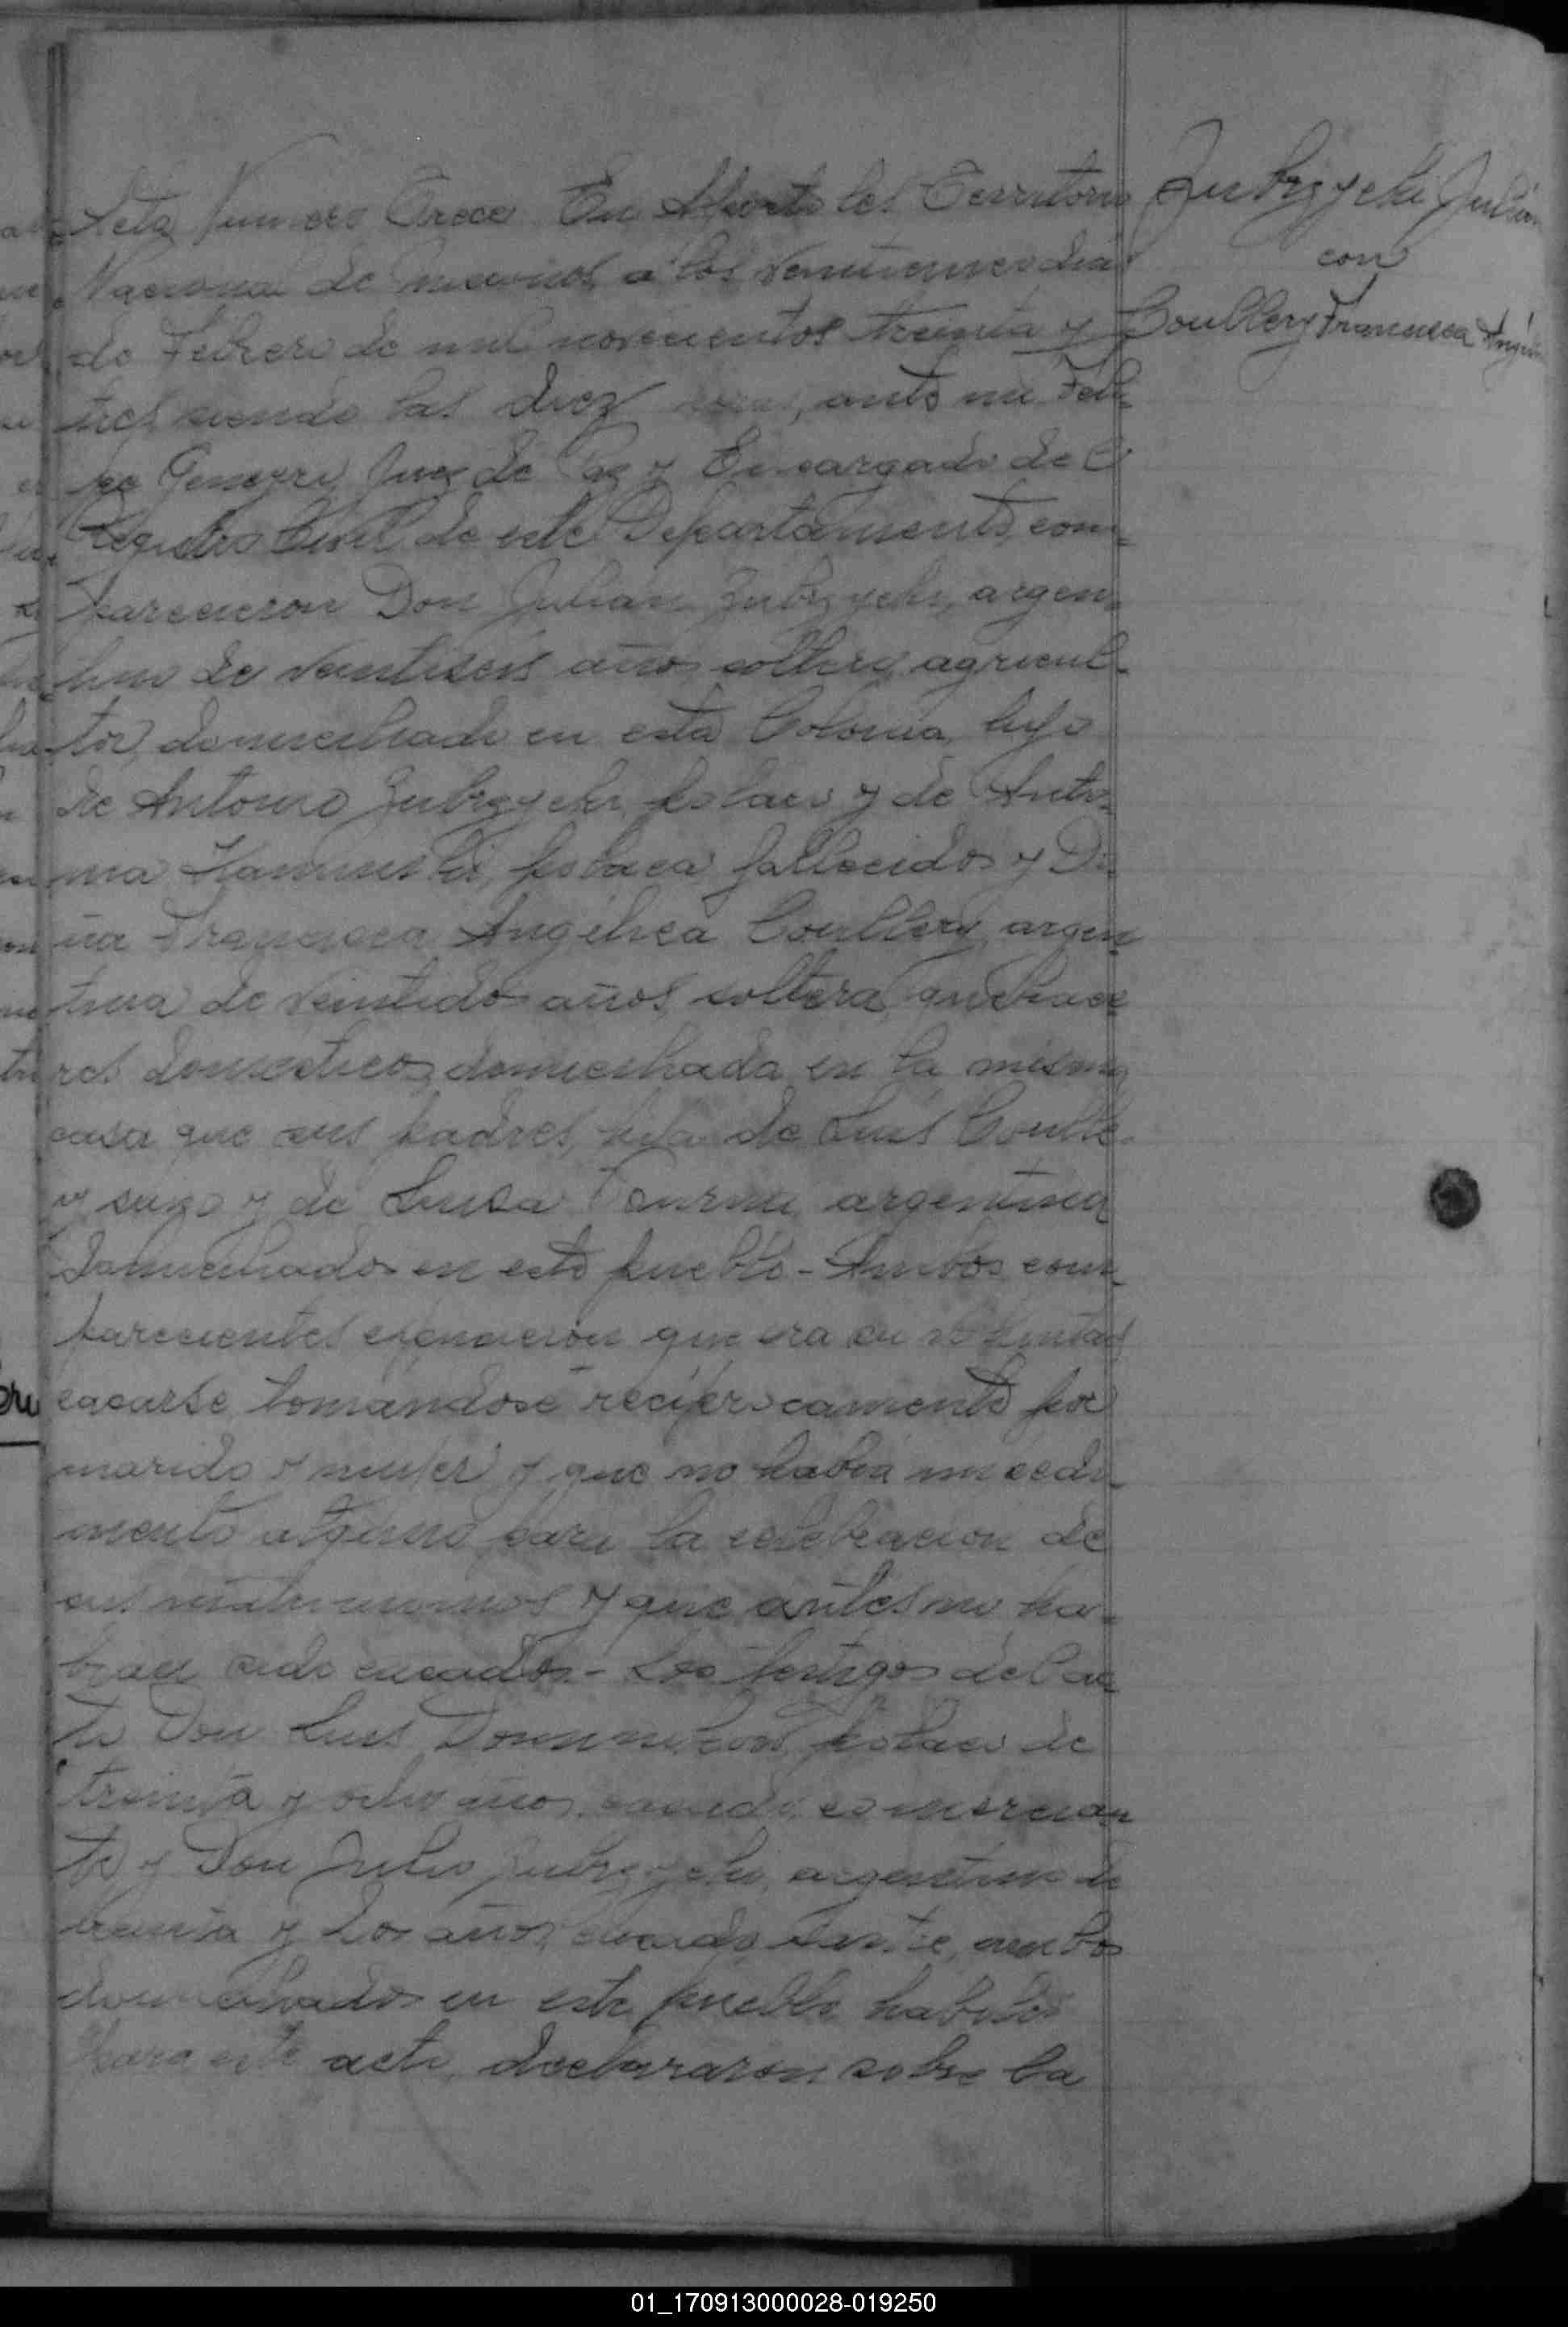 Zubrzycki Julián
con
Coullery Francisca Angélica
Acta Número Trece En Alberti del Territorio
Nacional de Misiones, a los veintinueve dias
de Febrero de mil novecientos treinta y
tres siendo las diez horas, ante mi Feli-
pe Juez de Paz y Encargado del
Registro Civil de este Departamento, com-
parecieron Don Julián Zubrzycki, argen-
tino de veintiseis años soltero, agricul-
tor, domiciliado en esta Colonia, hijo
de Antonio Zubrzycki, polaco y de Anto-
nia Kaminski, polaca fallecidos y Do-
ña Francisca Angélica Coullery, argen
tina de veintidos años, soltera, quehace
res domesticos, domiciliada en la misma
casa que sus padres, hija de Luis Coulle-
ry suizo y de Luisa argentina
domiciliados en este pueblo - Ambos com-
parecientes expusieron que era su voluntad
casarse, tomándose reciprocamente por
marido y mujer y que no habia impedi-
mento alguno para la celebracion de
sus matrimonios y que antes no ha-
bian sido casados - Los testigos del ac
to Don Luis polaco de
treinta y ocho años, casado, comercian
te y Don Julio Zubrzycki, argentino de
treinta y dos años, casado, ambos
domiciliados en este pueblo habiles
para este acto, declararon sobre la
01_170913000028-019250